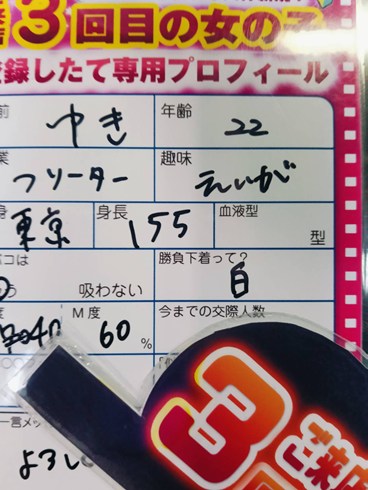 3回目の女の子
録したて専用プロフィール
前 ゆき 年齢 22
業 フリーター 趣味 えいが
身 東京 身長 155 血液型 型
バコは 吸わない 勝負下着って? 白
度 40 M度 60 % 今までの交際人数
一言メッ
よろし
3 ご来店